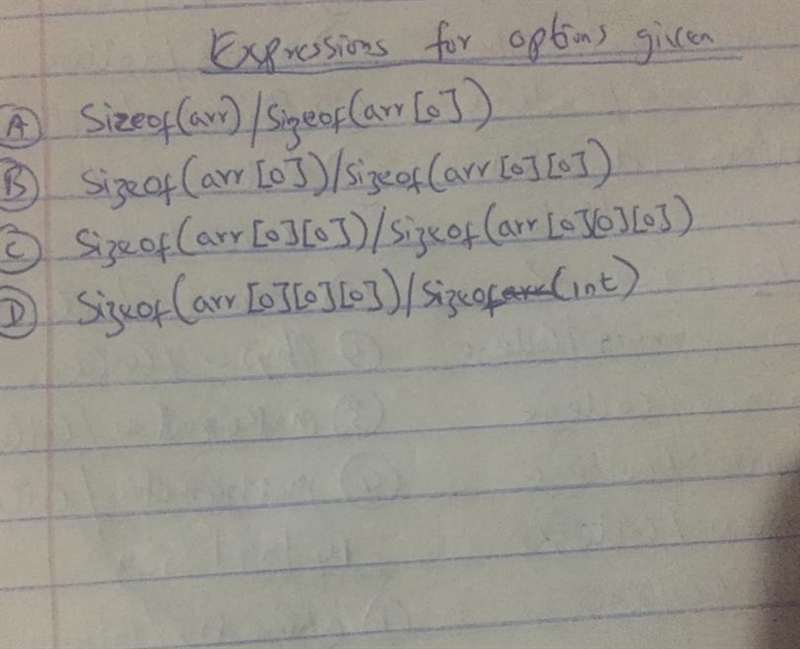 Expressions for options given
A Sizeof(arr)/Sizeof(arr[0])
B Sizeof(arr[0])/Sizeof(arr[0][0])
C Sizeof(arr[0][0])/Sizeof(arr[0][0][0])
D Sizeof(arr[0][0][0])/Sizeof(int)